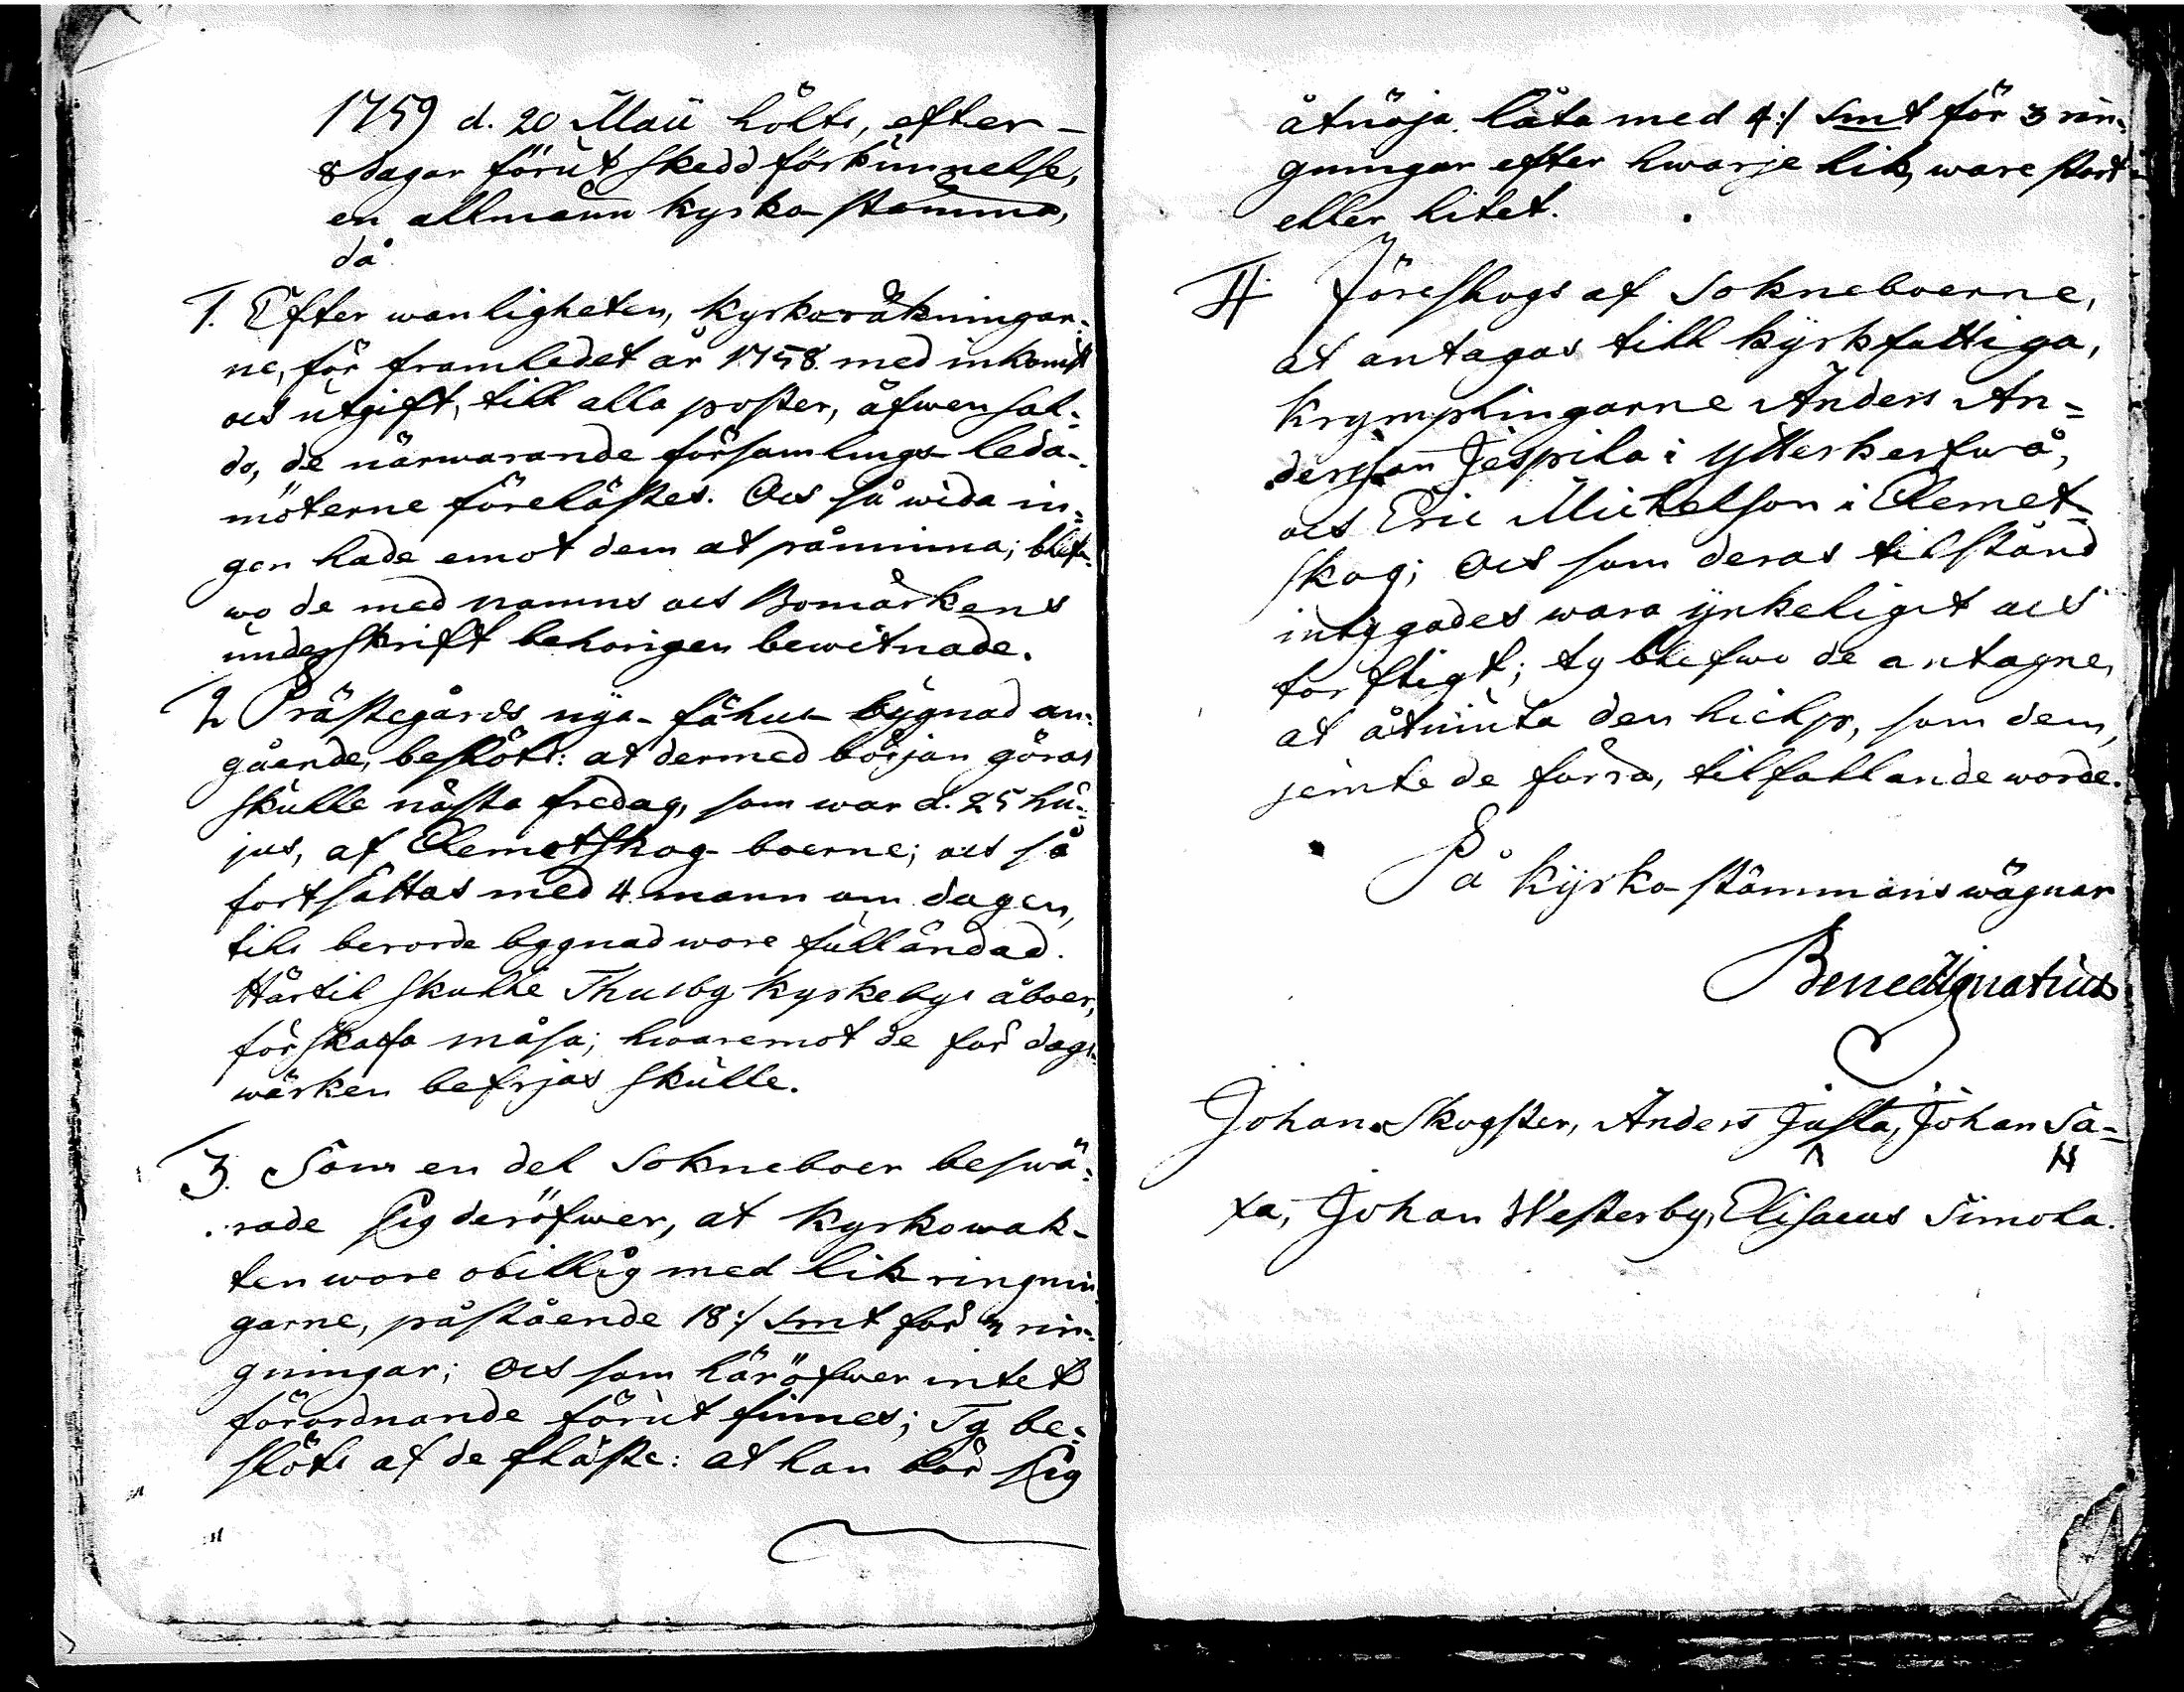 1759 d. 20 Maii hölts, efter-
8 dagar förut skedd förkunnelse,
en allmänn kyrko-stämma,
då
1. Efter wanligheten, kyrkoräkningar-
ne, för framledet år 1758. med inkomst
och utgift, till alla poster, äfwen sal-
do, de närwarande församlings-leda-
möterne föreläste͏s. Och så wida in-
gen hade emot dem at påminna; blef-
wo de med namns och Bomärkens
underskrift behörigen bewitnade.
2 Prästegårds nya-fähus-bygnad an-
gående, beslöts: at dermed början göras
skulle nästa fredag, som war d. 25 hu-
jus, af Clemetskog-boerne; och så
fortsättas med 4. mann om dagen,
tils berörde byggnad wore fulländad.
Härtil skulle Thusby kyrkebys åboer,
förskaffa måsa; hwaremot de för dags-
wärken befrias skulle.
3. Som en del Sokneboer beswä-
rade sig deröfwer, at kyrkowak-
ten wore obillig med lik ringnin
garne, påstående 18:/ Smt för 3 rin-
gningar; Och som häröfwer intet
förordnande förut finnes; Ty be-
slöts af de fläste: at han bör sig
åtnöja låta med 4:/ Smt för 3 rin-
gningar efter hwarje lik, ware stort
eller litet.
4. Föreslogs af Sokneboerne,
at antagas till kyrkfattiga,
Krymplingarne Anders An-
dersson Jespila i Ytterkerfwå,
och Eric Michelson i Clemet-
skog; Och som deras tilstånd
intygades wara ynkeligit och
torftigt; ty blefwo de antagne,
at åtniuta den hielp, som dem,
jemte de förra, tilfallande worde.
På kyrko-stämmans wägnar
Bened Ignatius
Johan Skogster, Anders Justa, Johan Sa-
xa, Johan Westerby, Elisaeus Simola.